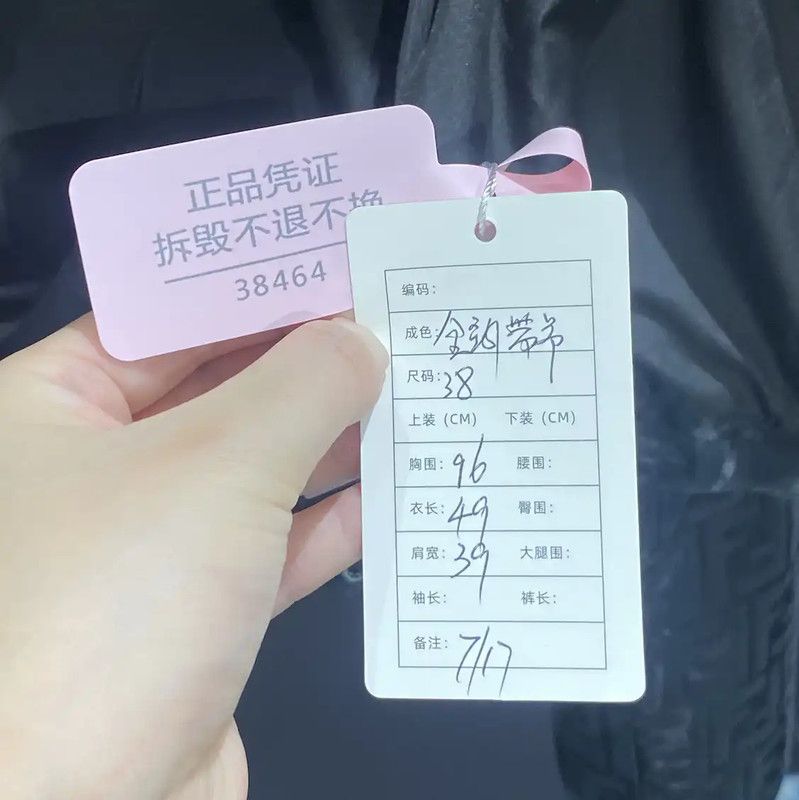 正品凭证
拆毁不退不换
38464
编码：
成色：全新带吊
尺码：38
上装（CM） 下装（CM）
胸围：96 腰围：
衣长：49 臀围：
肩宽：39 大腿围：
袖长： 裤长：
备注：7/17